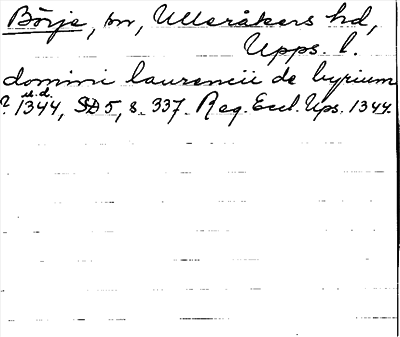 Börje, sn, Ulleråkers hd,
Upps. l.
domini laurencii de byrium
? u.d. 1344, SD 5, s. 337. Reg. Eccl. Ups. 1344.